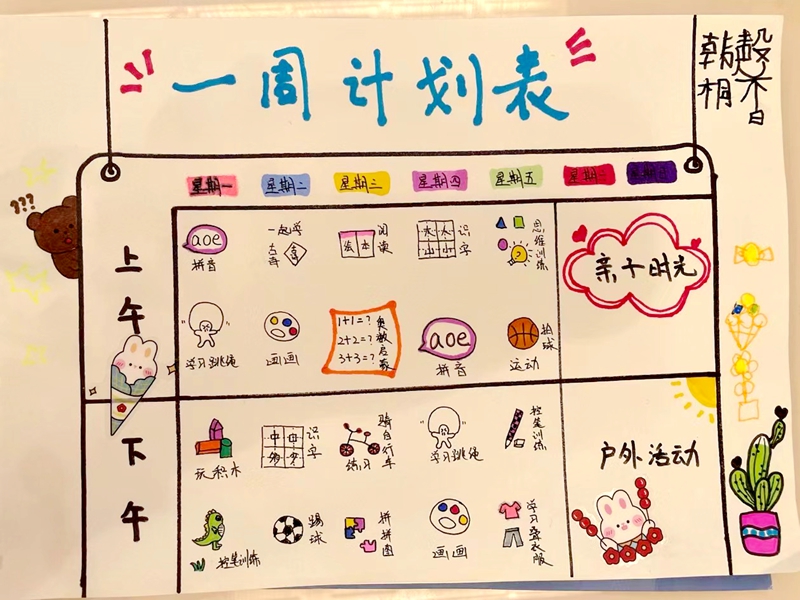 一周计划表
韩
桐
香
???
星期一 星期二 星期三 星期四 星期五 星期六 星期日
上午
aoe
拼音
一起学
古诗
绘本
阅读
识字
思维训练
亲子时光
学习跳绳
画画
1+1=?
2+2=?
3+3=?
奥数启蒙
aoe
拼音
拍球
运动
下午
玩积木
识字
骑自行车
练习
学习跳绳
控笔训练
户外活动
控笔训练
踢球
拼拼图
画画
学习叠衣服